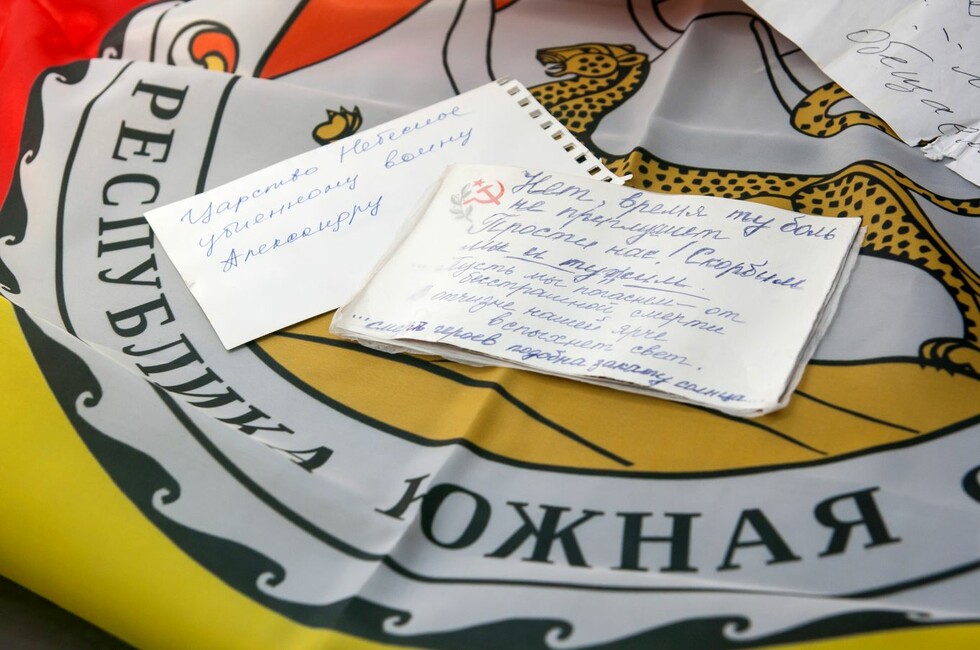 РЕСПУБЛИКА ЮЖНАЯ
Царство Небесное
убиенному воину
Александру
Нет, время ту боль
не приглушает
Прости нас! Скорбим
мы и тужим.
Пусть мы погибнем — от
бесстрашной смерти
отчизне нашей ярче
вспыхнет свет.
...смерть героев подобна закату солнца
Обеща